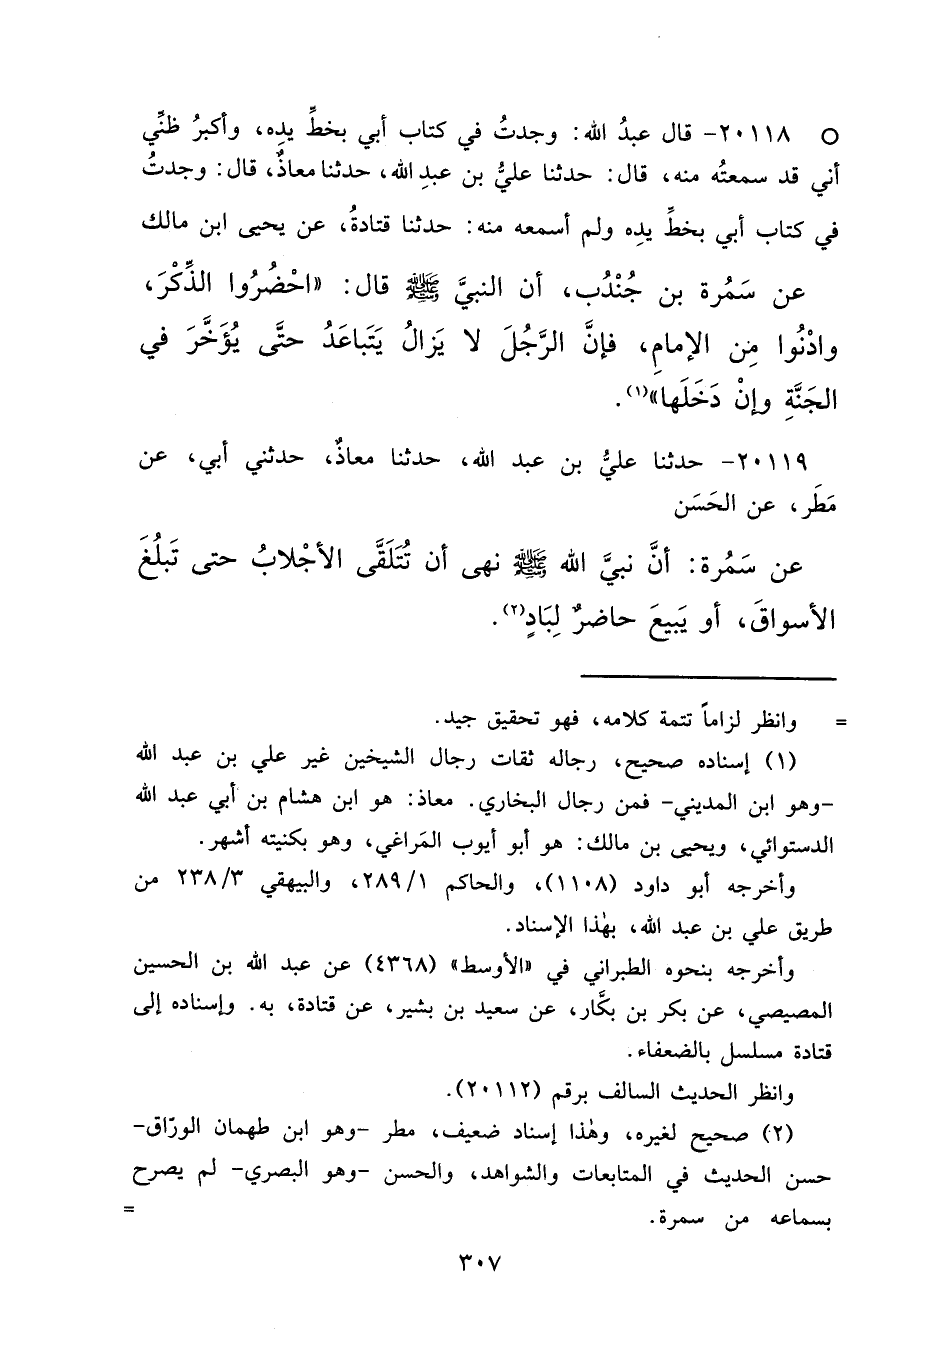 ○ ٢٠١١٨- قال عبدُ الله: وجدتُ في كتاب أبي بخطِّ يدِه، وأكبرُ ظنِّي
أني قد سمعتُه منه، قال: حدثنا عليُّ بن عبدِ الله، حدثنا معاذٌ، قال: وجدتُ
في كتاب أبي بخطِّ يدِه ولم أسمعه منه: حدثنا قتادةُ، عن يحيى ابن مالك
عن سَمُرة بن جُنْدُب، أن النبيَّ ﷺ قال: «احْضُرُوا الذِّكْرَ،
وادْنُوا مِن الإمامِ، فإنَّ الرَّجُلَ لا يَزالُ يَتَباعَدُ حتَّى يُؤَخَّرَ في
الجَنَّةِ وإنْ دَخَلَها»(١).
٢٠١١٩- حدثنا عليُّ بن عبد الله، حدثنا معاذٌ، حدثني أبي، عن
مَطَر، عن الحَسَن
عن سَمُرة: أنَّ نبيَّ الله ﷺ نهى أن تُتَلَقَّى الأجْلابُ حتى تَبلُغَ
الأسواقَ، أو يَبيعَ حاضرٌ لِبَادٍ(٢).
= وانظر لزاماً تتمة كلامه، فهو تحقيق جيد.
(١) إسناده صحيح، رجاله ثقات رجال الشيخين غير علي بن عبد الله
-وهو ابن المديني- فمن رجال البخاري. معاذ: هو ابن هشام بن أبي عبد الله
الدستوائي، ويحيى بن مالك: هو أبو أيوب المَراغي، وهو بكنيته أشهر.
وأخرجه أبو داود (١١٠٨)، والحاكم ٢٨٩/١، والبيهقي ٢٣٨/٣ من
طريق علي بن عبد الله، بهٰذا الإسناد.
وأخرجه بنحوه الطبراني في «الأوسط» (٤٣٦٨) عن عبد الله بن الحسين
المصيصي، عن بكر بن بكَّار، عن سعيد بن بشير، عن قتادة، به. وإسناده إلى
قتادة مسلسل بالضعفاء.
وانظر الحديث السالف برقم (٢٠١١٢).
(٢) صحيح لغيره، وهٰذا إسناد ضعيف، مطر -وهو ابن طهمان الورّاق-
حسن الحديث في المتابعات والشواهد، والحسن -وهو البصري- لم يصرح
بسماعه من سمرة. =
٣٠٧